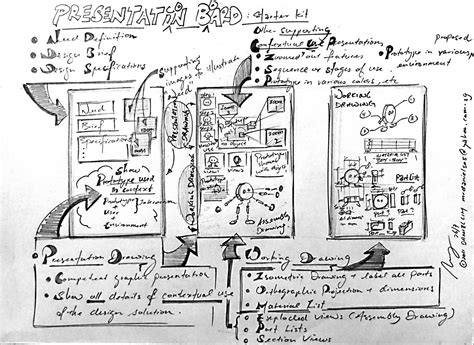 PRESENTATION BOARD : Starter kit
Need Definition
Design Brief
Design Specifications
Supporting
images to illustrate
Other supporting
Contextual Use Presentations
Zoomed out features
Sequence or stages of use
Prototype in various colors, etc
proposed
Prototype in various
environment
Need
Brief
Specifications
Show
Prototype used
in context
Prototype
User
Environment
PRESENTATION
DRAWING
WORKING DRAWING
ZOOM
ZOOM
2
views
Assembly
Drawing
WORKING
DRAWING
Part List
Presentation Drawing
Competent graphic presentation
Show all details of contextual use
of the design solution.
Working Drawing
Isometric Drawing + label all parts
Orthographic Projection + dimensions
Material List
Exploded Views (Assembly Drawing)
Part Lists
Section Views